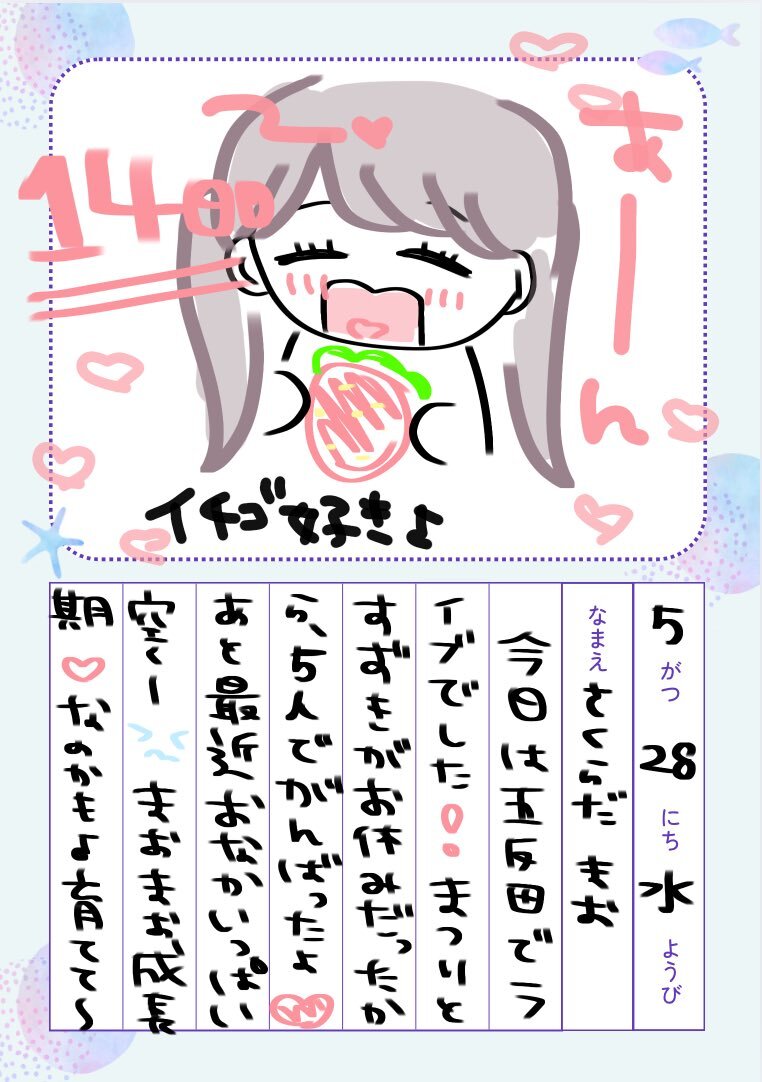 あーん
1400
イチゴ好きよ
5がつ28にち水ようび
なまえ さくらだ まお
今日は五反田でラ
イブでした！まつりと
すずきがお休みだったか
ら、5人でがんばったよ♡
あと最近おなかいっぱい
空くー まおまお成長
期♡なのかもよ育てて〜